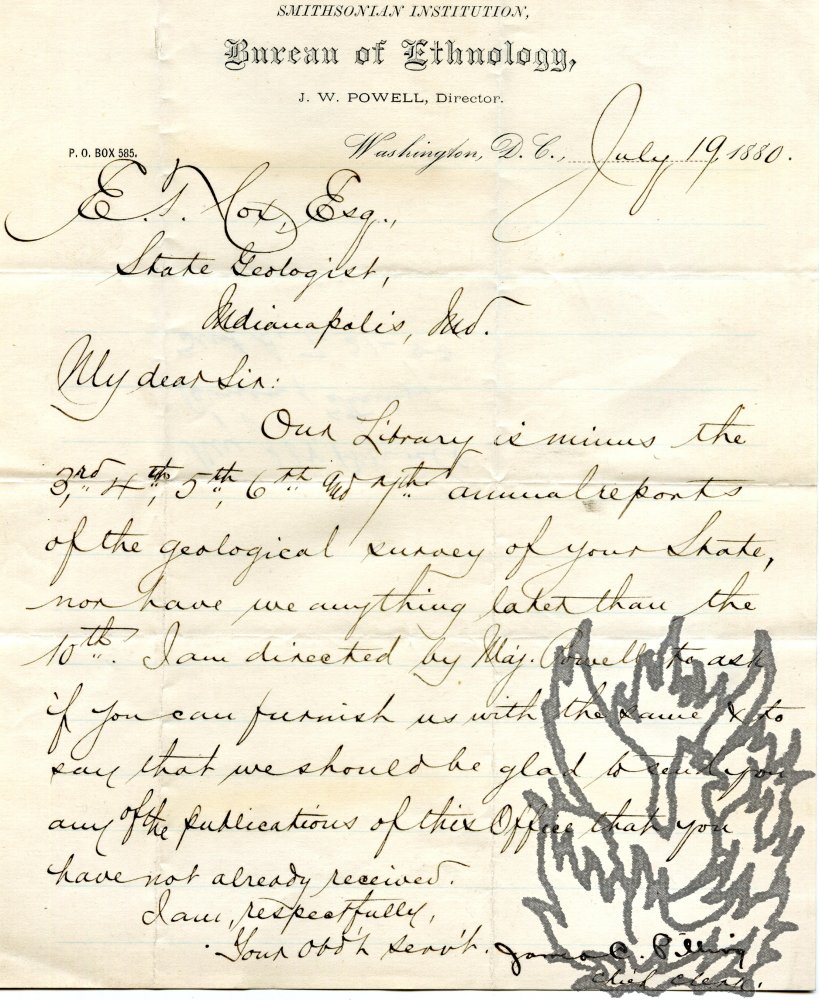 SMITHSONIAN INSTITUTION,
Bureau of Ethnology,
J. W. POWELL, Director.
P. O. BOX 585.
Washington, D. C., July 19, 1880.
E. T. Cox, Esq.,
State Geologist,
Indianapolis, Ind.
My dear Sir:
Our Library is minus the
3rd, 4th, 5th, 6th and 7th annual reports
of the geological survey of your State,
nor have we anything later than the
10th. I am directed by Maj. Powell to ask
if you can furnish us with the same & to
say that we should be glad to send you
any of the publications of this Office that you
have not already received.
I am, respectfully,
Your obd't serv't.
James C. Pilling
Chief Clerk.